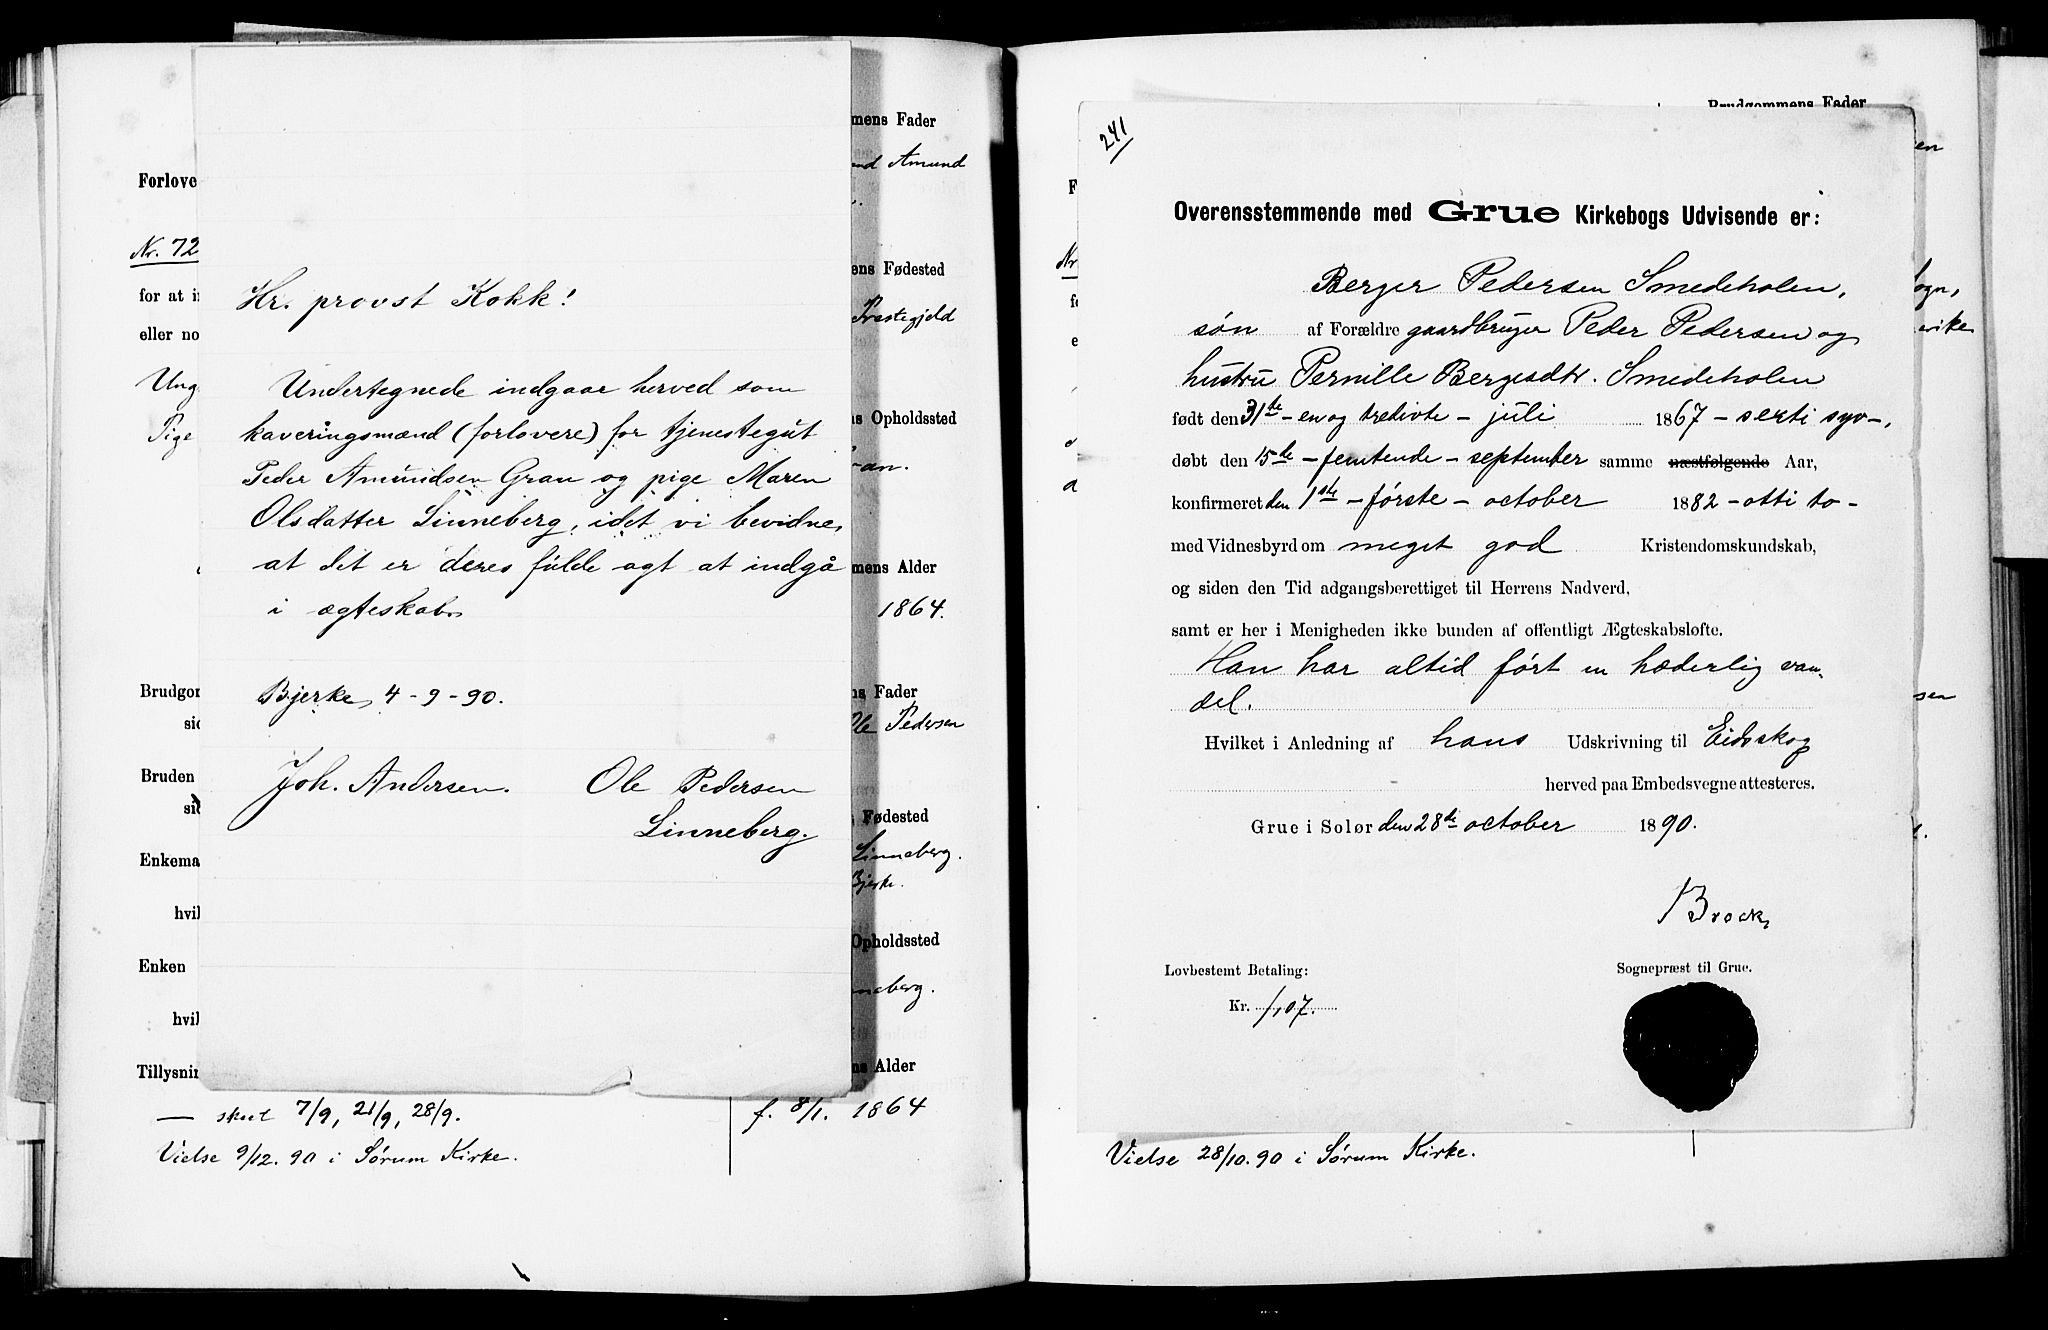 Forlove
mens Fader
nd Amund
Nr. 72
ens Fødested
for at i
Hr. provst Kokk!
Præstegjeld
eller no
Ung
Undertegnede indgaar herved som
ns Opholdssted
Pige
kaveringsmænd (forlovere) for tjenestegut
Peder Amundsen Gran og pige Maren
ran.
Olsdatter Linneberg, idet vi bevidne,
at det er deres fulde agt at indgå
mens Alder
i ægteskab.
1864.
Brudgor
Bjerke, 4-9-90.
ns Fader
sid
Ole Pedersen
Bruden
Joh. Andersen. Ole Pedersen
sid
Linneberg.
Fødested
Enkema
Linneberg.
Bjerke.
hvil
Opholdssted
Enken
nneberg.
hvil
Tillysnin
ns Alder
— skeet 7/9, 21/9, 28/9.
f. 8/1. 1864
Vielse 9/12. 90 i Sørum Kirke.
Brudgommens Fader
241
en
F
Overensstemmende med Grue Kirkebogs Udvisende er:
Nr
ogn,
Berger Pedersen Smedeholen,
søn af Forældre gaardbruger Peder Pedersen og
hustru Pernille Bergesdtr. Smedeholen
født den 31te - en og tredivte - juli 1867 - serti syv -,
døbt den 15de - femtende - september samme næstfølgende Aar,
konfirmeret den 1ste - første - october 1882 - otti to -
med Vidnesbyrd om meget god Kristendomskundskab,
og siden den Tid adgangsberettiget til Herrens Nadverd,
samt er her i Menigheden ikke bunden af offentligt Ægteskabsløfte.
Han har altid ført en hæderlig van-
del.
sen
Hvilket i Anledning af hans Udskrivning til Eidskog
herved paa Embedsvegne attesteres.
Grue i Solør den 28de october 1890.
Brock
Lovbestemt Betaling:
Sognepræst til Grue.
Kr. 1,07.
Vielse 28/10. 90 i Sørum Kirke.